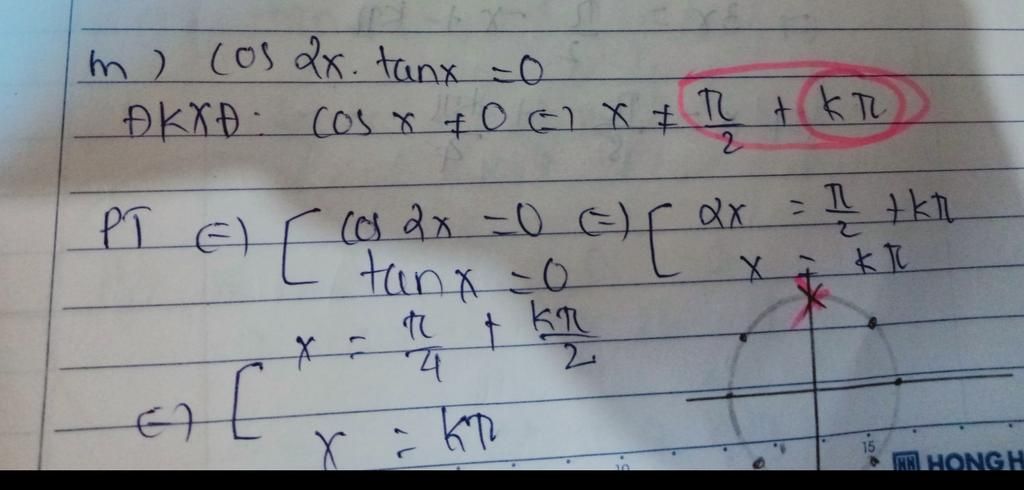 m) cos 2x. tanx = 0
ĐKXĐ: cos x ≠ 0 (=) x ≠ π/2 + kπ
PT (=) [ cos 2x = 0 (=) [ 2x = π/2 + kπ
tanx = 0 x = kπ
x = π/4 + kπ/2
(=) [
x = kπ
10 15 HONG H